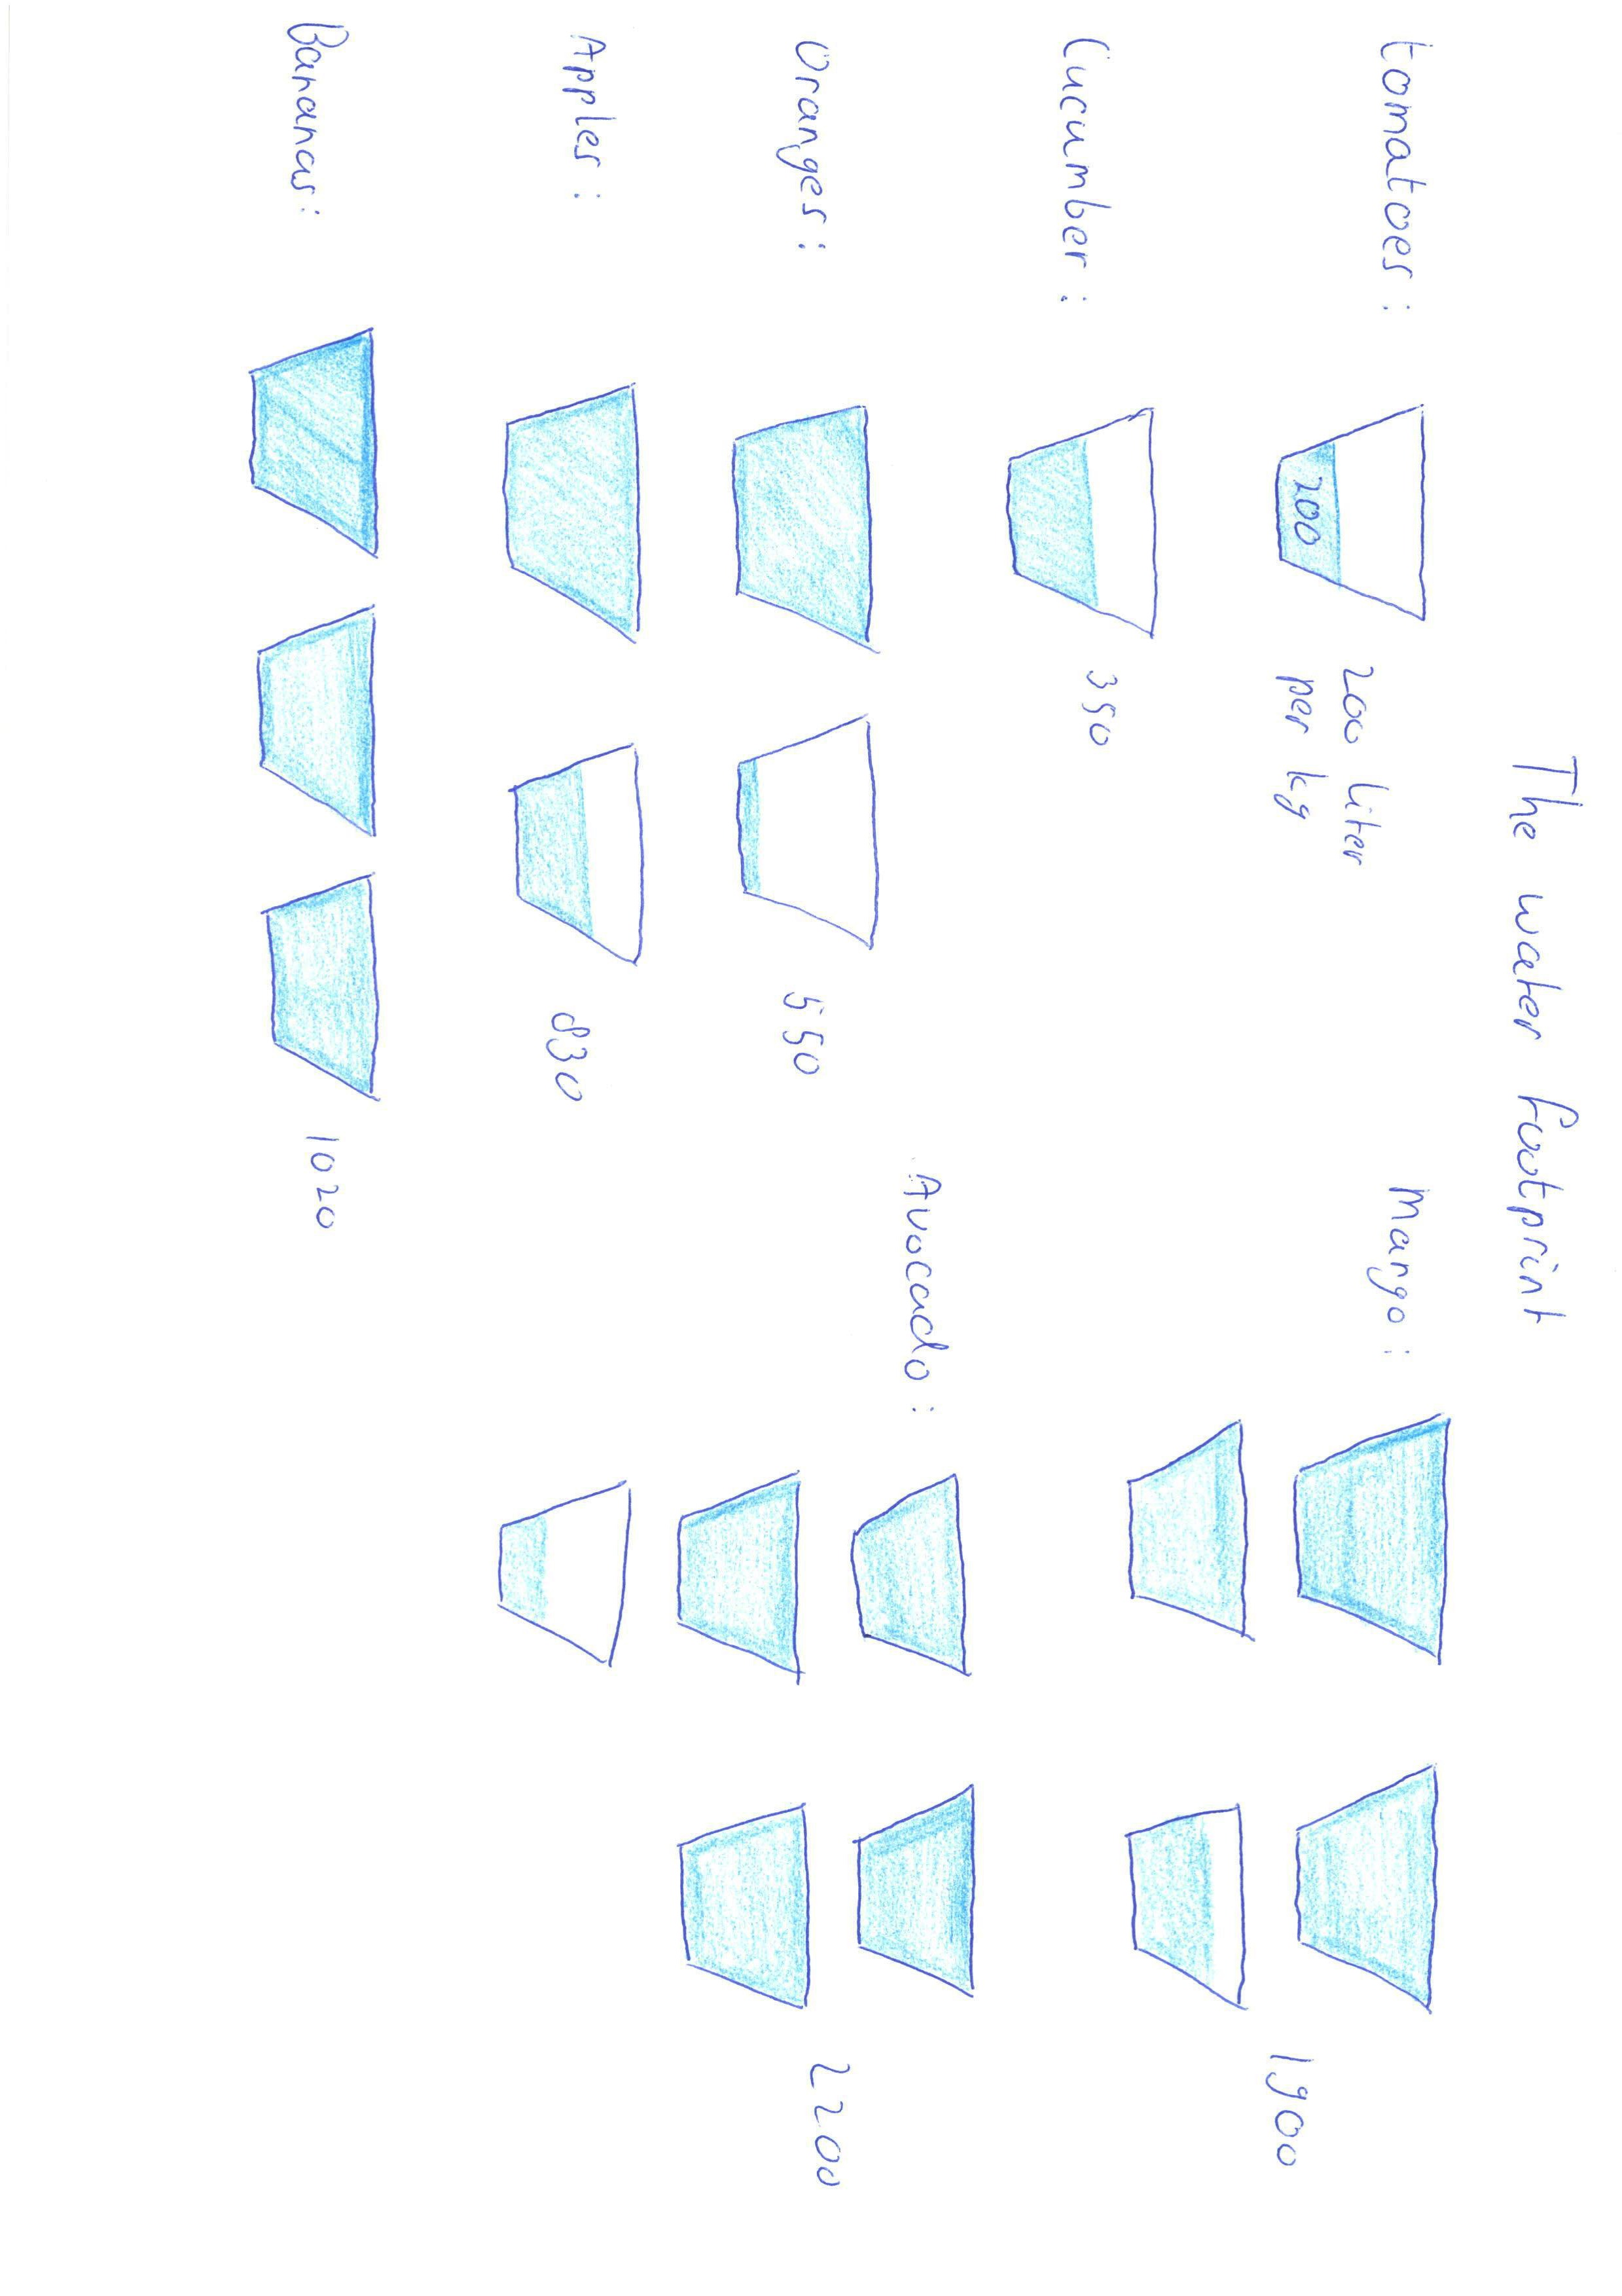 The water footprint
tomatoes :
200
200 liter
per kg
Cucumber :
350
Oranges :
550
Apples :
830
Bananas :
1020
Mango :
1900
Avocado :
2200